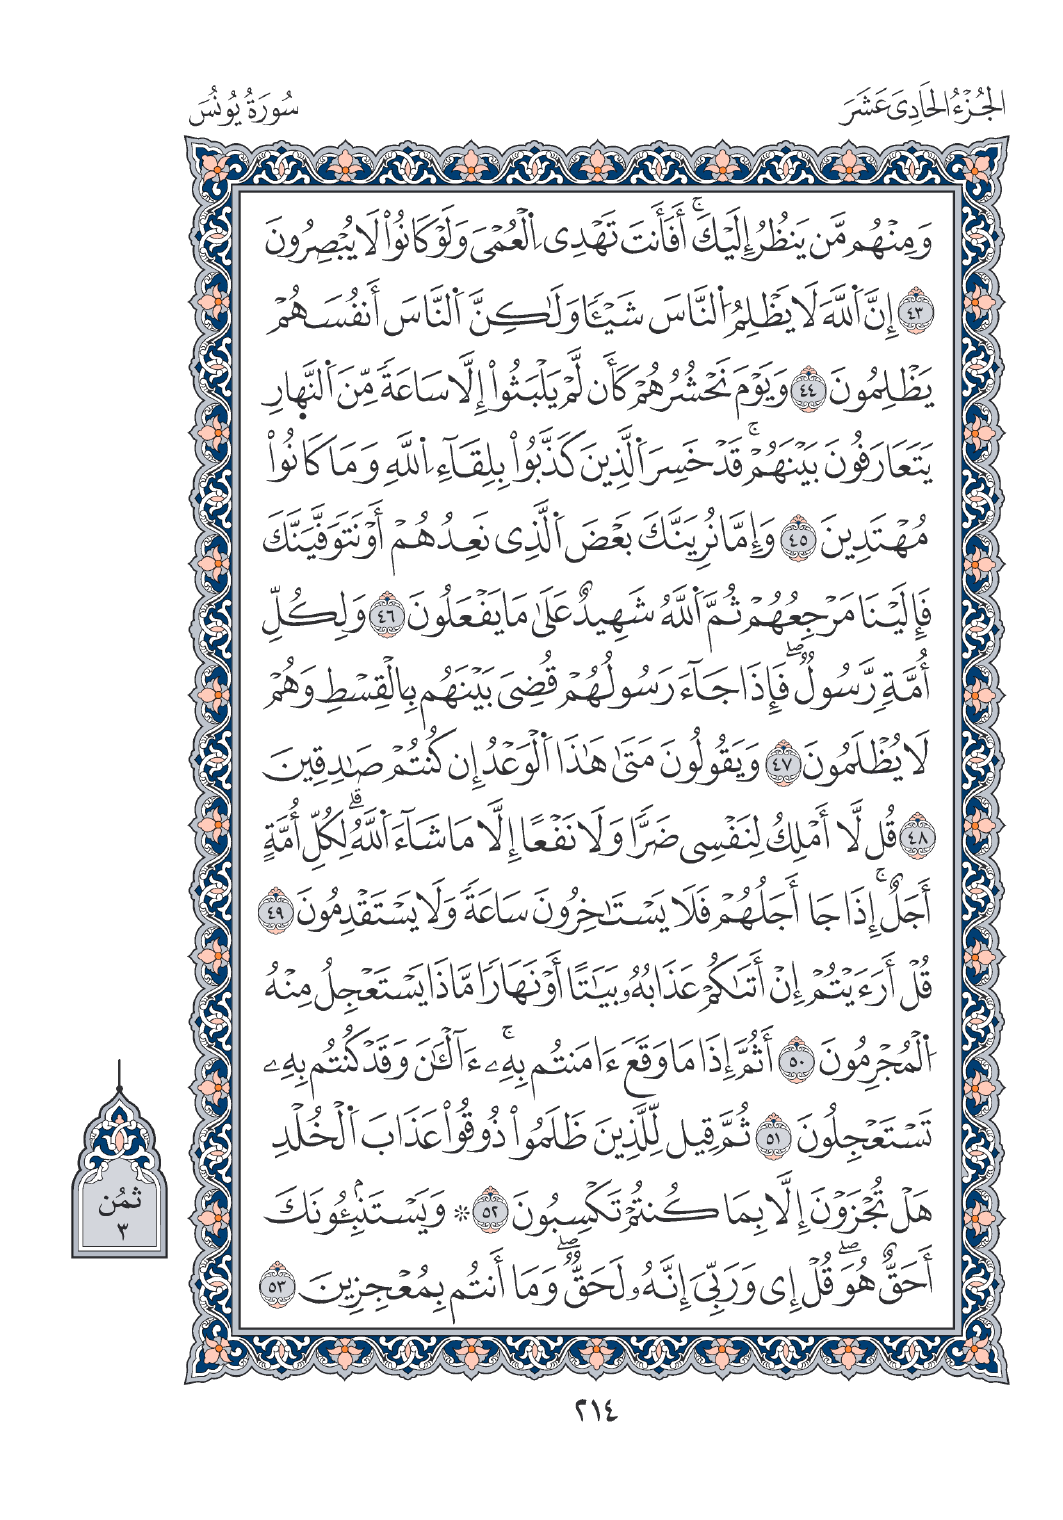 الجُزْءُ الحَادِىَ عَشَرَ
سُورَةُ يُونُسَ
وَمِنْهُم مَّن يَنظُرُ إِلَيْكَۚ أَفَأَنتَ تَهْدِى اِ۬لْعُمْىَ وَلَوْ كَانُواْ لَا يُبْصِرُونَ
٤٣ إِنَّ اَ۬للَّهَ لَا يَظْلِمُ اُ۬لنَّاسَ شَيْـٔٗا وَلَٰكِنَّ اَ۬لنَّاسَ أَنفُسَهُمْ
يَظْلِمُونَ ٤٤ وَيَوْمَ نَحْشُرُهُمْ كَأَن لَّمْ يَلْبَثُواْ إِلَّا سَاعَةٗ مِّنَ اَ۬لنَّهارِ
يَتَعَارَفُونَ بَيْنَهُمْۚ قَدْ خَسِرَ اَ۬لَّذِينَ كَذَّبُواْ بِلِقَآءِ اِ۬للَّهِ وَمَا كَانُواْ
مُهْتَدِينَ ٤٥ وَإِمَّا نُرِيَنَّكَ بَعْضَ اَ۬لَّذِى نَعِدُهُمْ أَوْ نَتَوَفَّيَنَّكَ
فَإِلَيْنَا مَرْجِعُهُمْ ثُمَّ اَ۬للَّهُ شَهِيدٌ عَلَىٰ مَا يَفْعَلُونَ ٤٦ وَلِكُلِّ
أُمَّةٖ رَّسُولٞۖ فَإِذَا جَآءَ رَسُولُهُمْ قُضِىَ بَيْنَهُم بِالْقِسْطِ وَهُمْ
لَا يُظْلَمُونَ ٤٧ وَيَقُولُونَ مَتَىٰ هَٰذَا اَ۬لْوَعْدُ إِن كُنتُمْ صَٰدِقِينَ
٤٨ قُل لَّا أَمْلِكُ لِنَفْسِى ضَرّٗا وَلَا نَفْعًا إِلَّا مَا شَآءَ اَ۬للَّهُۗ لِكُلِّ أُمَّةٍ
أَجَلٌۚ إِذَا جَا أَجَلُهُمْ فَلَا يَسْتَـٰٔخِرُونَ سَاعَةٗ وَلَا يَسْتَقْدِمُونَ ٤٩
قُلْ أَرَءَيْتُمْ إِنْ أَتَىٰكُمْ عَذَابُهُۥ بَيَٰتًا أَوْ نَهَارٗا مَّاذَا يَسْتَعْجِلُ مِنْهُ
اُ۬لْمُجْرِمُونَ ٥٠ أَثُمَّ إِذَا مَا وَقَعَ ءَامَنتُم بِهِۦٓۚ ءَآلْـَٰٔنَ وَقَدْ كُنتُم بِهِۦ
تَسْتَعْجِلُونَ ٥١ ثُمَّ قِيلَ لِلَّذِينَ ظَلَمُواْ ذُوقُواْ عَذَابَ اَ۬لْخُلْدِ
هَلْ تُجْزَوْنَ إِلَّا بِمَا كُنتُمْ تَكْسِبُونَ ٥٢ ۞ وَيَسْتَنۢبِـُٔونَكَ
أَحَقٌّ هُوَۖ قُلْ إِى وَرَبِّىَ إِنَّهُۥ لَحَقّٞۖ وَمَا أَنتُم بِمُعْجِزِينَ ٥٣
ثمُن
٣
٢١٤